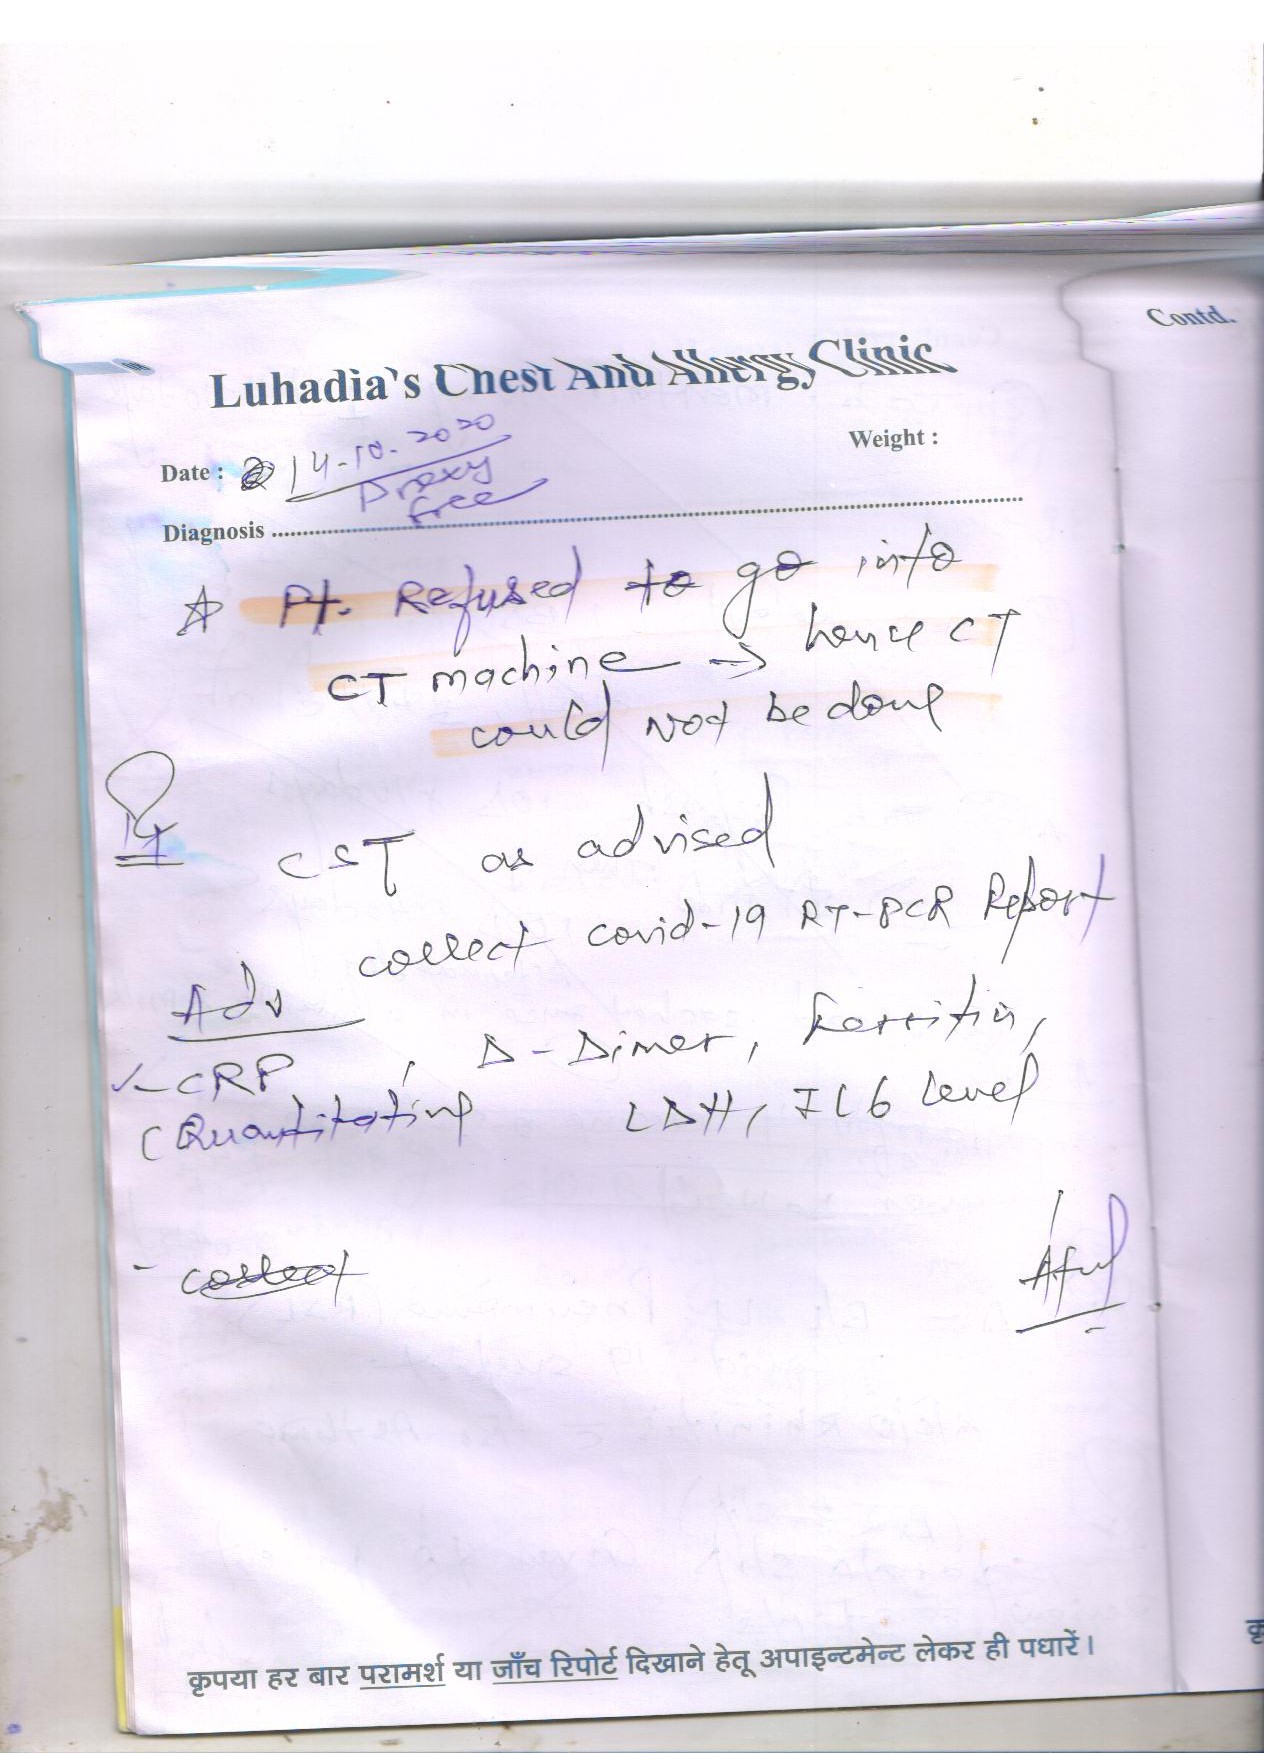 Contd.
Luhadia's Chest And Allergy Clinic
Date : 14-10-2020
Weight :
Proxy
free
Diagnosis
Pt. Refused to go into
CT machine → hence CT
could Not be done
CST as advised
collect covid-19 RT-PCR Report
Adv
- CRP, D-Dimer, Ferritin,
(Quantitative LDH, IL6 level
- collect
कृपया हर बार परामर्श या जाँच रिपोर्ट दिखाने हेतू अपाइन्टमेन्ट लेकर ही पधारें।
कृ